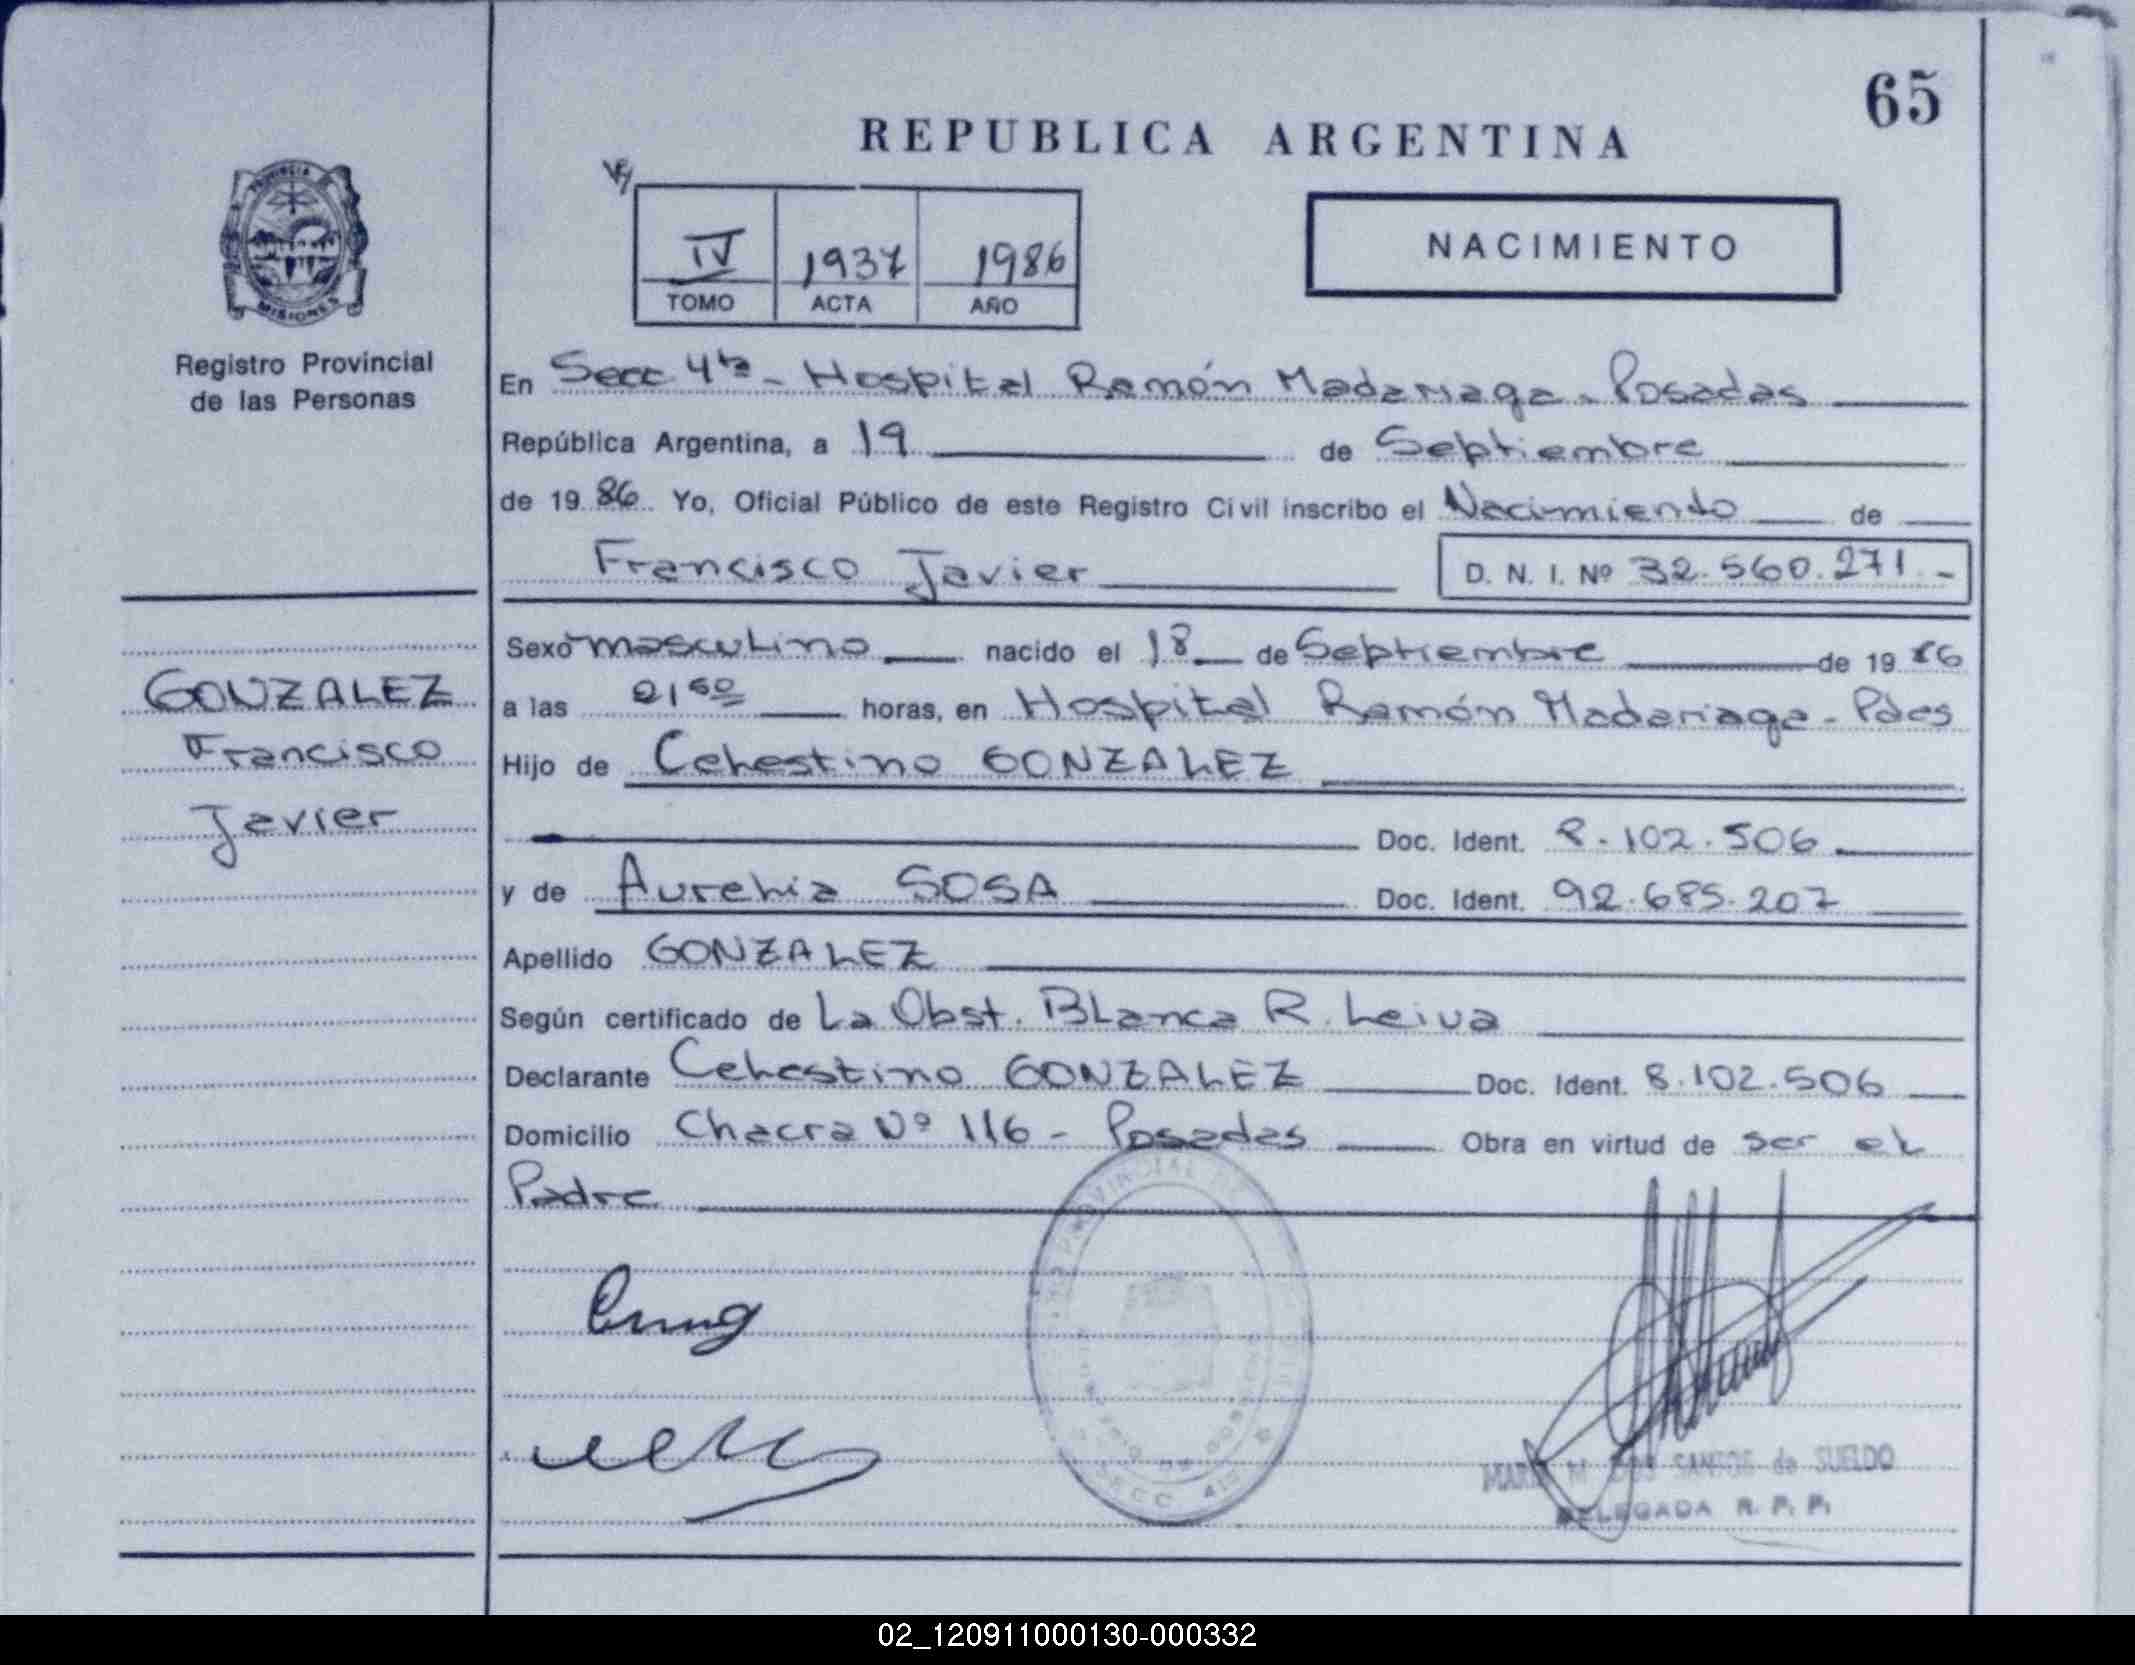 65
REPUBLICA ARGENTINA
PROVINCIA
MISIONES
Registro Provincial
de las Personas
IV 1937 1986
TOMO ACTA AÑO
NACIMIENTO
En Secc 4ta - Hospital Ramón Madariaga - Posadas
República Argentina, a 19 de Septiembre
de 1986 Yo, Oficial Público de este Registro Civil inscribo el Nacimiento de
Francisco Javier D. N. I. Nº 32.560.271.-
GONZALEZ
Francisco
Javier
Sexo masculino nacido el 18 de Septiembre de 1986
a las horas, en Hospital Ramón Madariaga - Pdas
Hijo de Celestino GONZALEZ
Doc. Ident. 8.102.506
y de Aurelia SOSA Doc. Ident. 92.685.207
Apellido GONZALEZ
Según certificado de La Obst. Blanca R. Leiva
Declarante Celestino GONZALEZ Doc. Ident. 8.102.506
Domicilio Chacra Nº 116 - Posadas Obra en virtud de ser el
Padre
SANTOS de SUELDO
DELEGADA R. P. P.
02_120911000130-000332